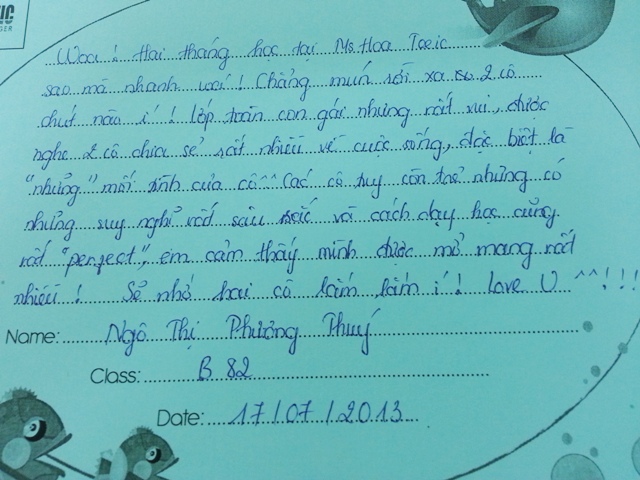 IC
GER
Woa ! Hai tháng học tại Ms Hoa Toeic
sao mà nhanh vậi ! Chẳng mún rời xa 2 cô
chút nào í ! lớp toàn con gái nhưng rất vui, được
nghe 2 cô chia sẻ rất nhiều về cuộc sống, đặc biệt là
"những" mối tình của cô ^^ Các cô tuy còn trẻ nhưng có
những suy nghĩ rất sâu sắc và cách dạy học cũng
rất "perfect", em cảm thấy mình được mở mang rất
nhiều ! Sẽ nhớ hai cô lắm lắm í ! love U ^^ !!!
Name: Ngô Thị Phương Thuý
Class: B 82
Date: 17/07/2013